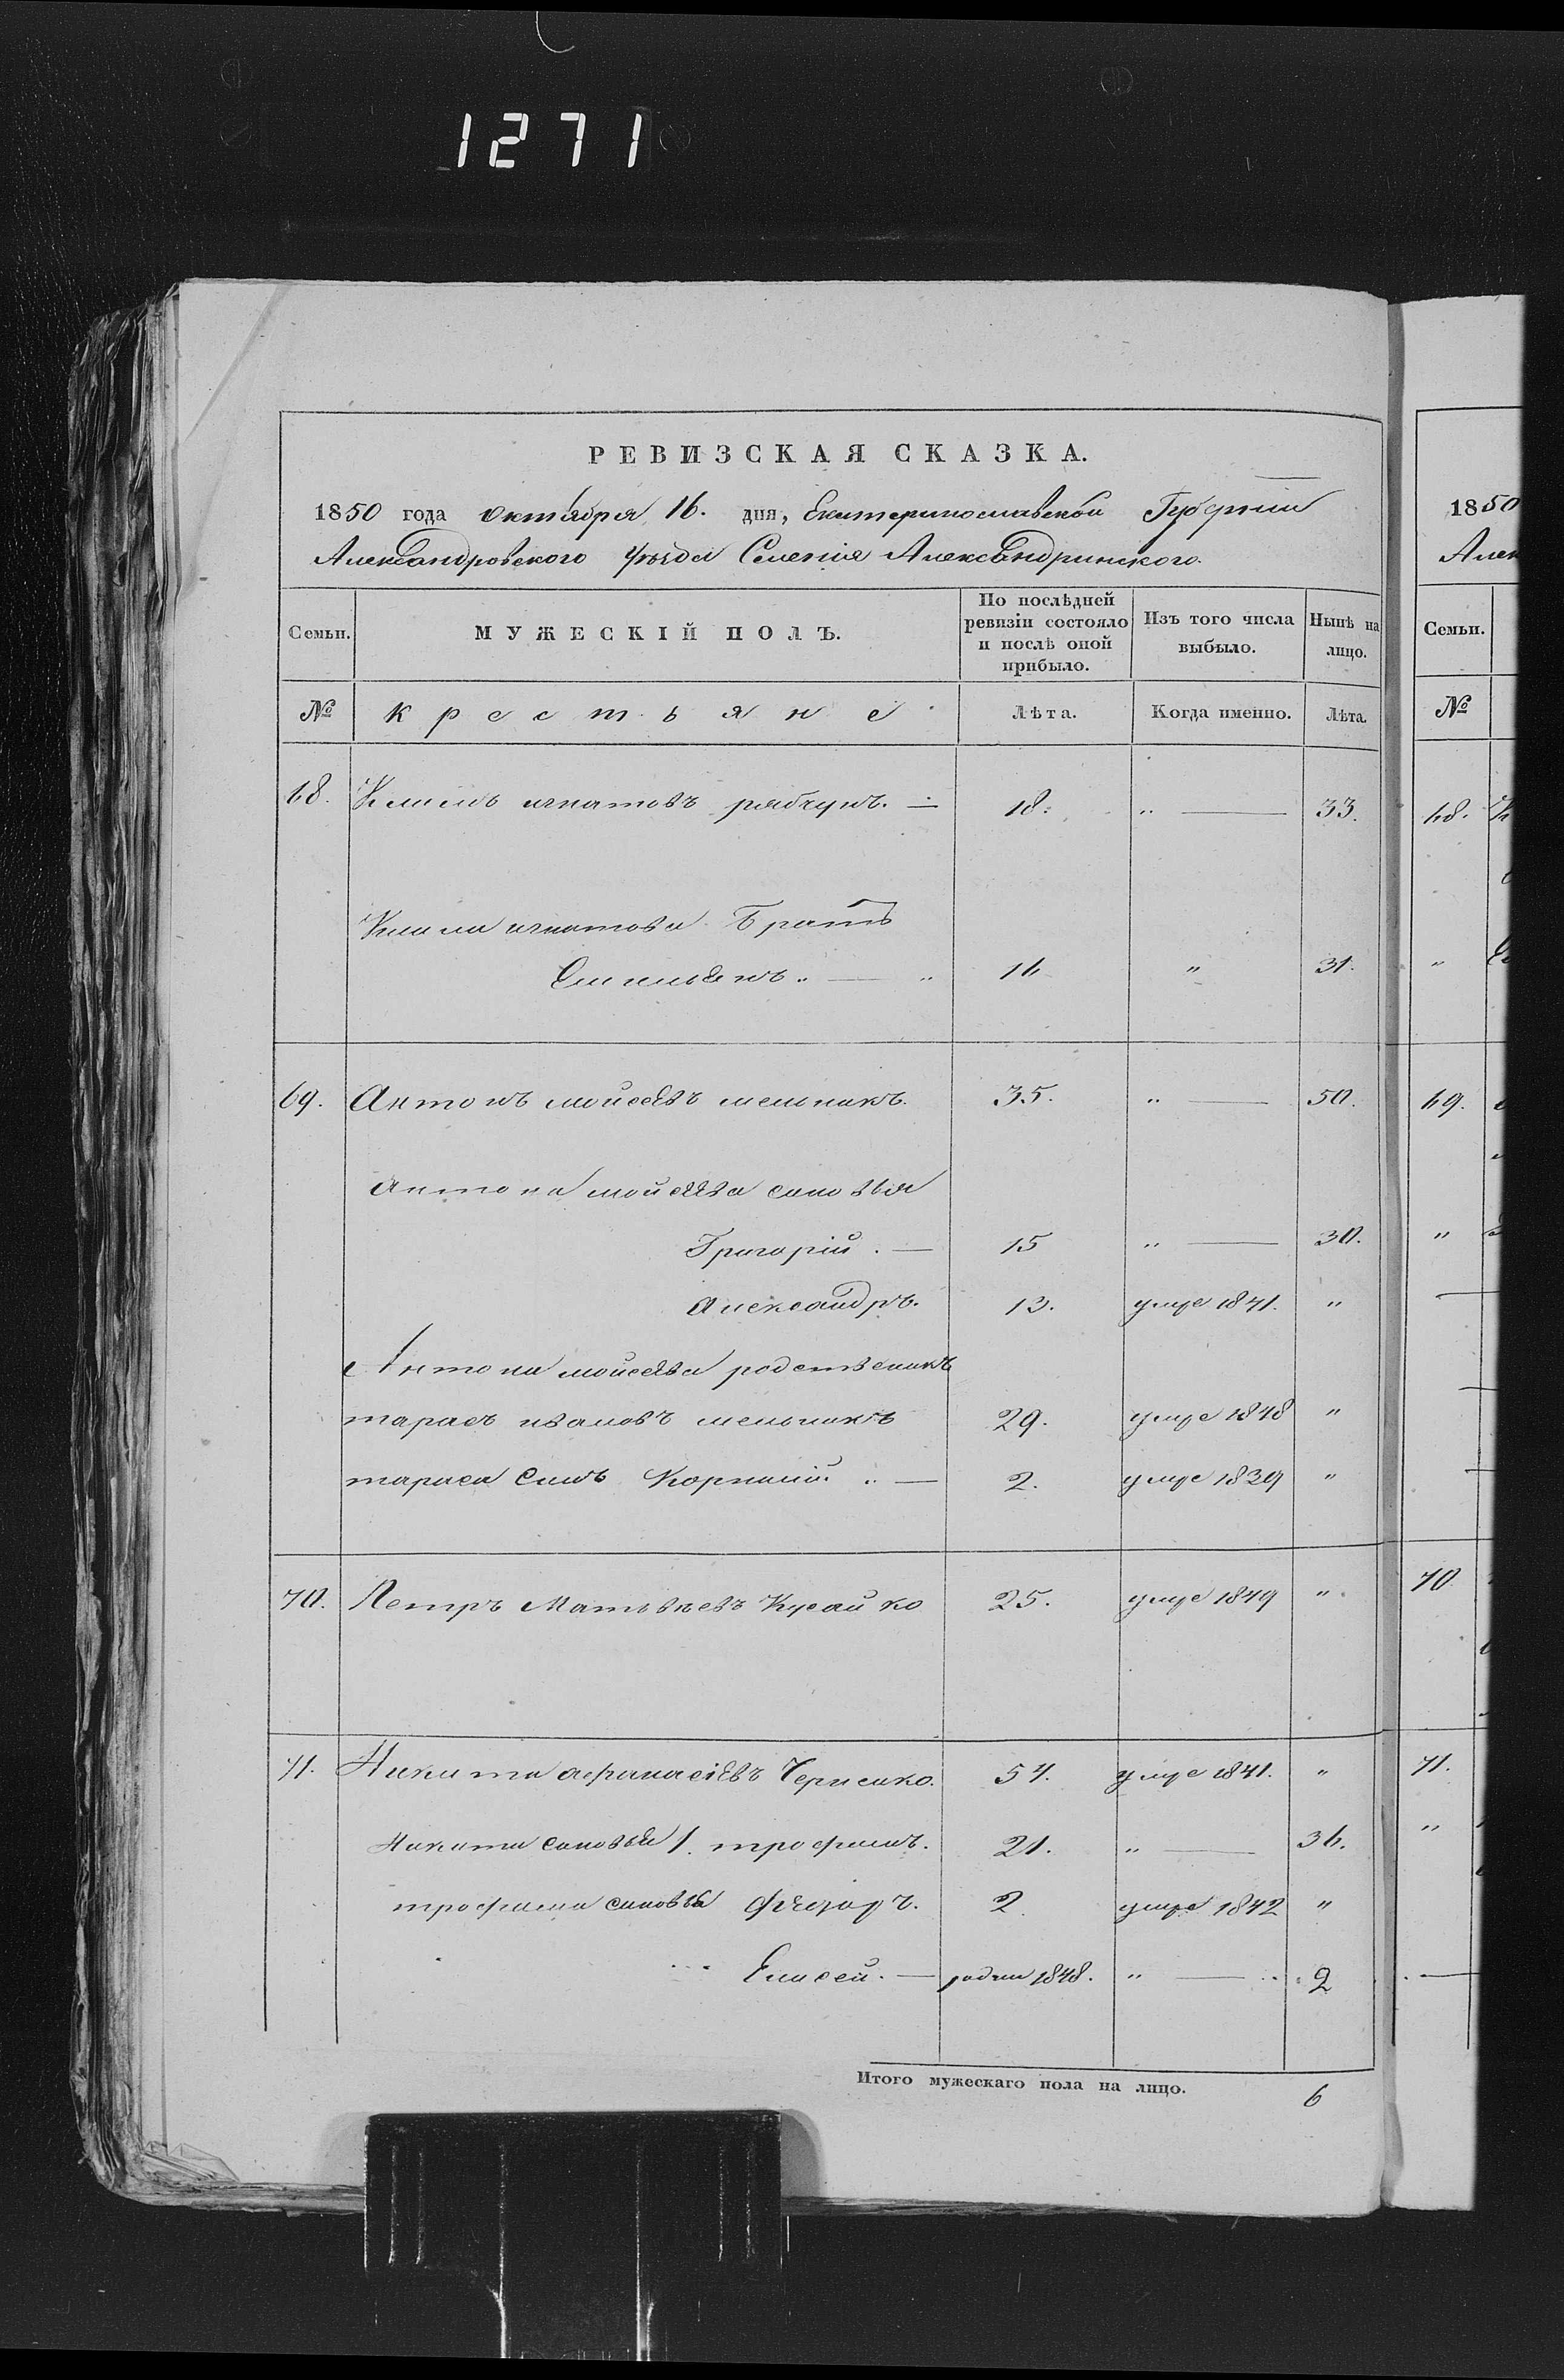 1271
РЕВИЗСКАЯ СКАЗКА.
1850 года октября 16. дня, Екатеринославской Губернии
Александровского уѣзда Селенія Александринского.
Семьи. МУЖЕСКІЙ ПОЛЪ. По послѣдней ревизіи состояло и послѣ оной прибыло. Изъ того числа выбыло. Нынѣ на лицо.
№ крестьяне Лѣта. Когда именно. Лѣта.
68. Климъ игнатовъ рябчунъ. — 18. „ — 33.
Клима игнатова Братъ
Емильянъ. — „ 16 „ 31.
69. Антонъ мойсеевъ мельникъ. 35. „ — 50.
антона мойсеева сыновья
Григорій. — 15 „ — 30.
александръ. 13. умре 1841. „
Антона мойсеева родственикъ
тарасъ ивановъ мельникъ 29. умре 1848 „
тараса сынъ Корнилий. „ — 2. умре 1839 „
70. Петръ Матвѣевъ Кусайко 25. умре 1849 „
71. Никита афанасіевъ Черненко. 57. умре 1841. „
Никиты сыновья 1. трофимъ. 21. „ — 36.
трофима сыновья 2 умре 1842 „
Елисей. — родил 1848. „ — 2
Итого мужескаго пола на лицо. 6
1850
Алек
Семьи.
№
68.
„
69.
„
70
71.
„